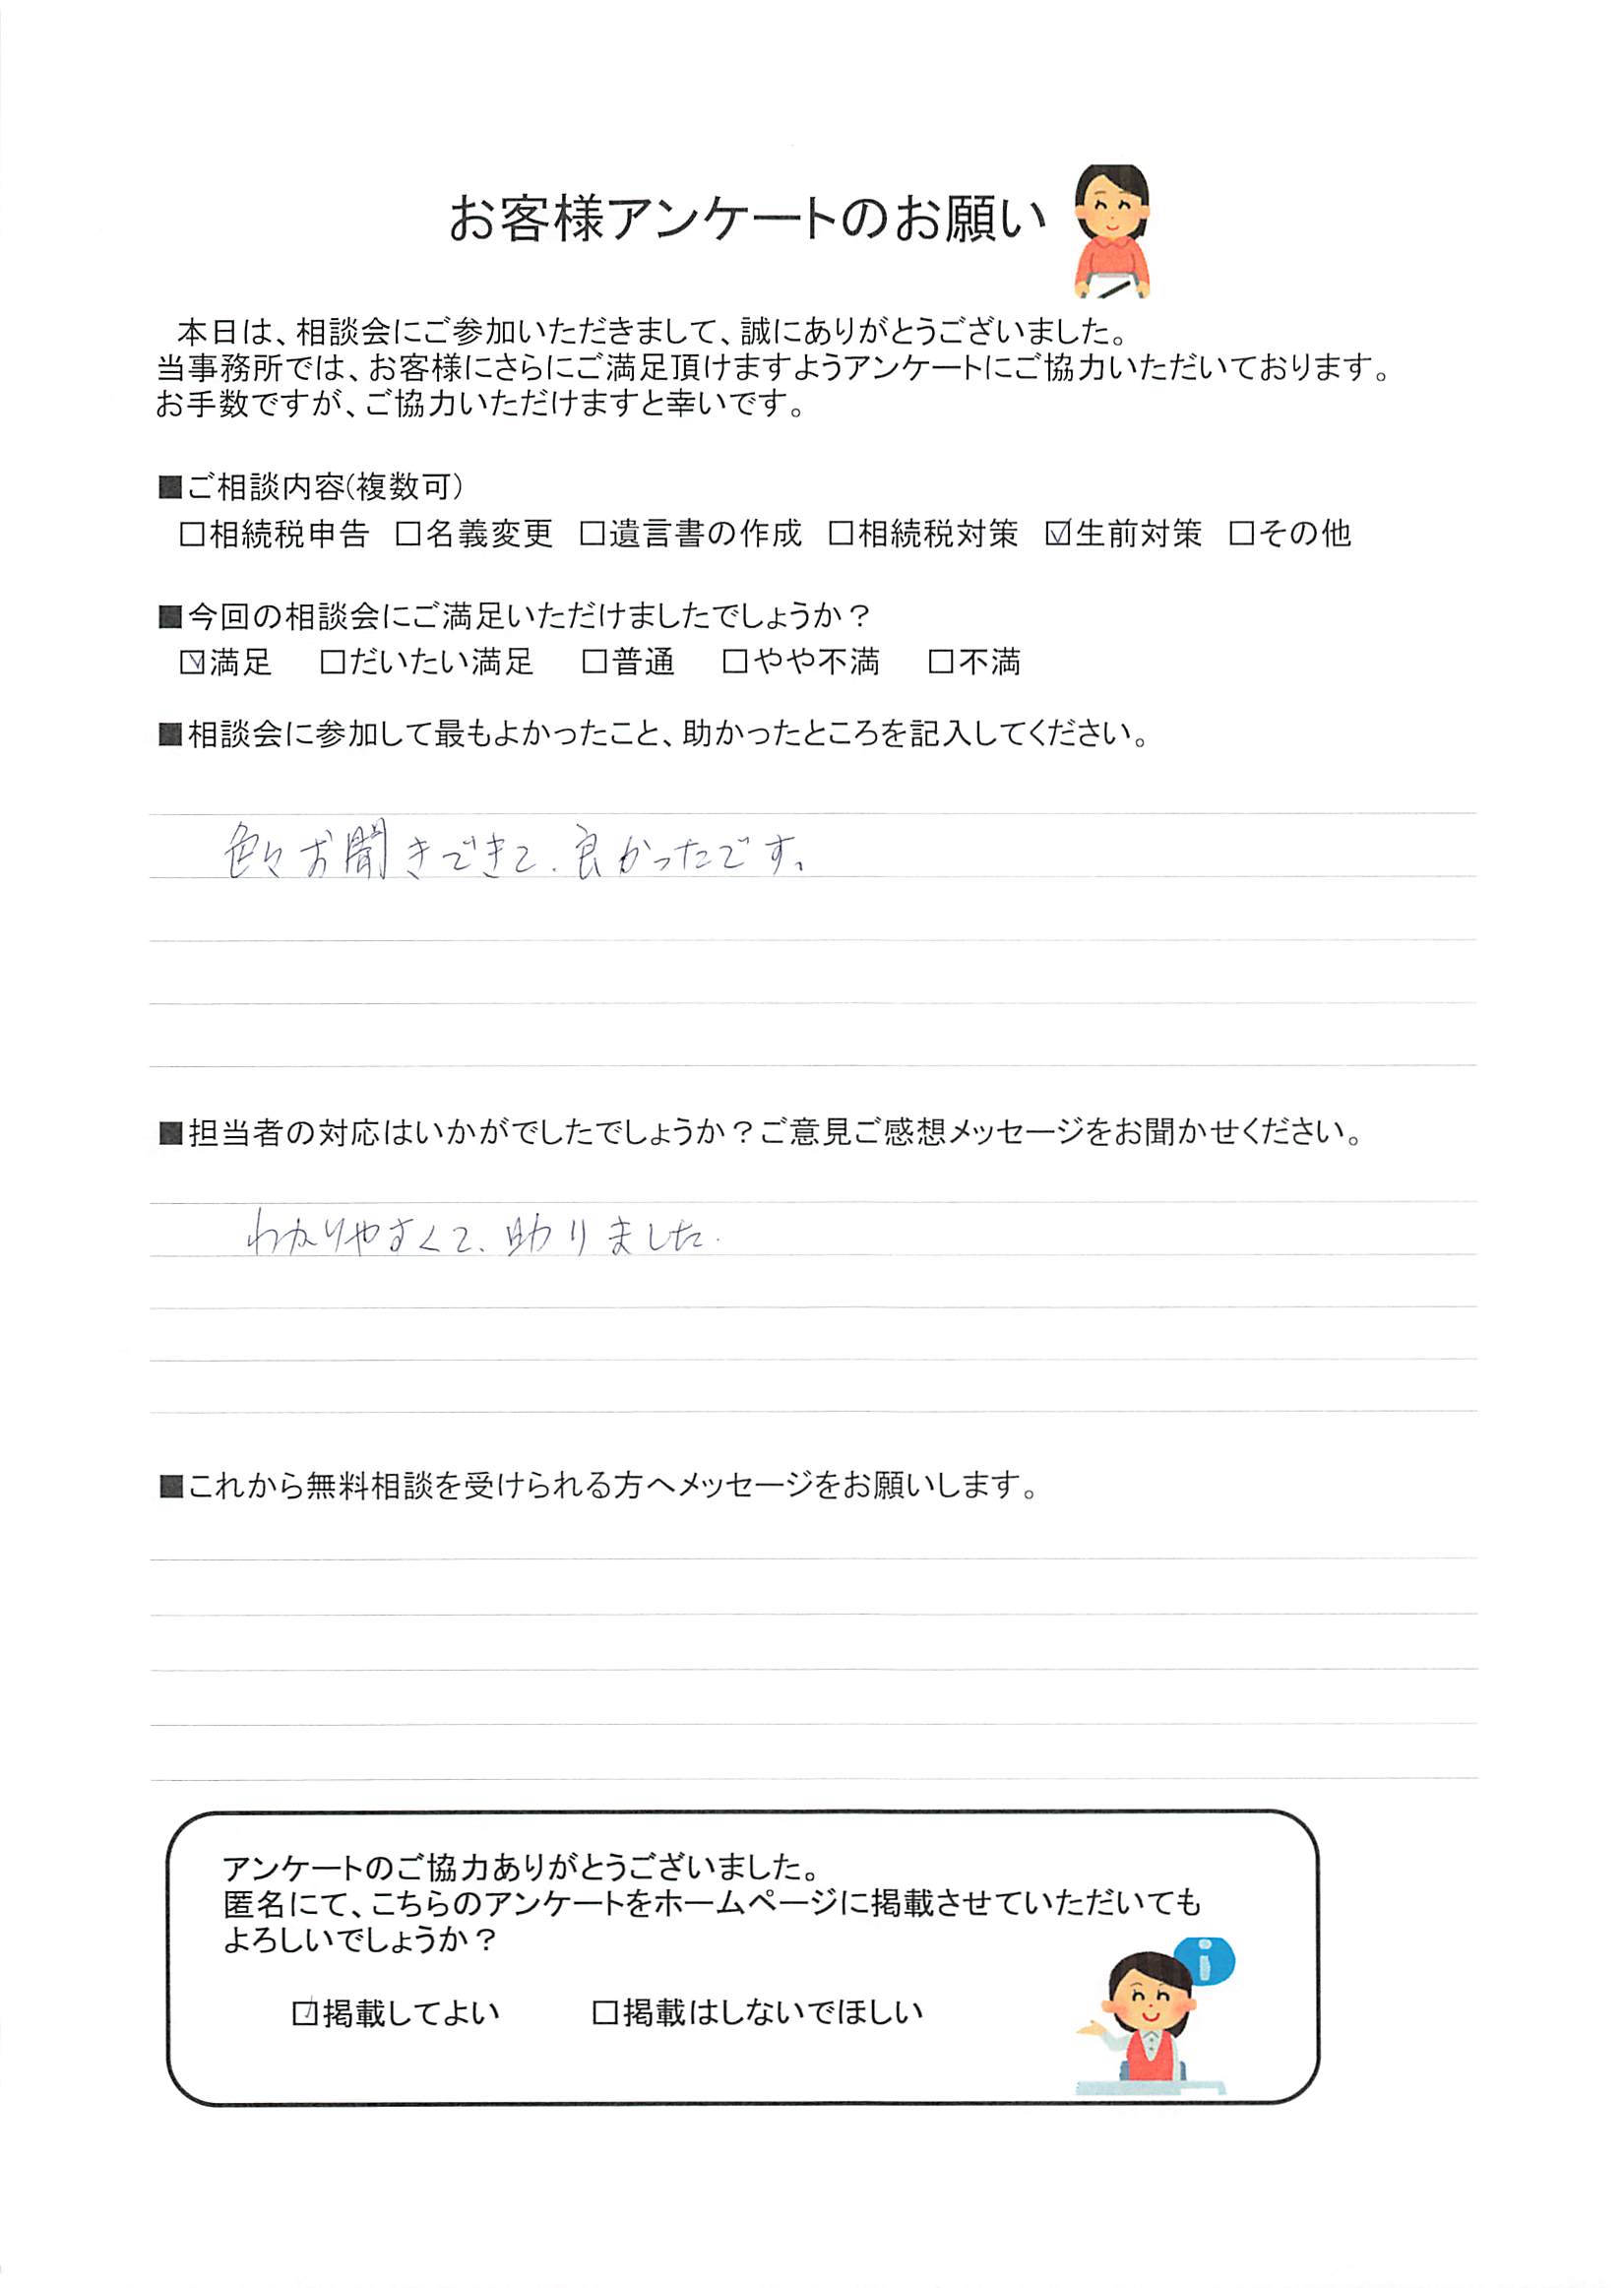 お客様アンケートのお願い
本日は、相談会にご参加いただきまして、誠にありがとうございました。
当事務所では、お客様にさらにご満足頂けますようアンケートにご協力いただいております。
お手数ですが、ご協力いただけますと幸いです。
■ご相談内容(複数可)
□相続税申告 □名義変更 □遺言書の作成 □相続税対策 ☑生前対策 □その他
■今回の相談会にご満足いただけましたでしょうか？
☑満足 □だいたい満足 □普通 □やや不満 □不満
■相談会に参加して最もよかったこと、助かったところを記入してください。
色々お聞きできて、良かったです。
■担当者の対応はいかがでしたでしょうか？ご意見ご感想メッセージをお聞かせください。
わかりやすくて、助りました.
■これから無料相談を受けられる方へメッセージをお願いします。
アンケートのご協力ありがとうございました。
匿名にて、こちらのアンケートをホームページに掲載させていただいても
よろしいでしょうか？
i
☑掲載してよい □掲載はしないでほしい